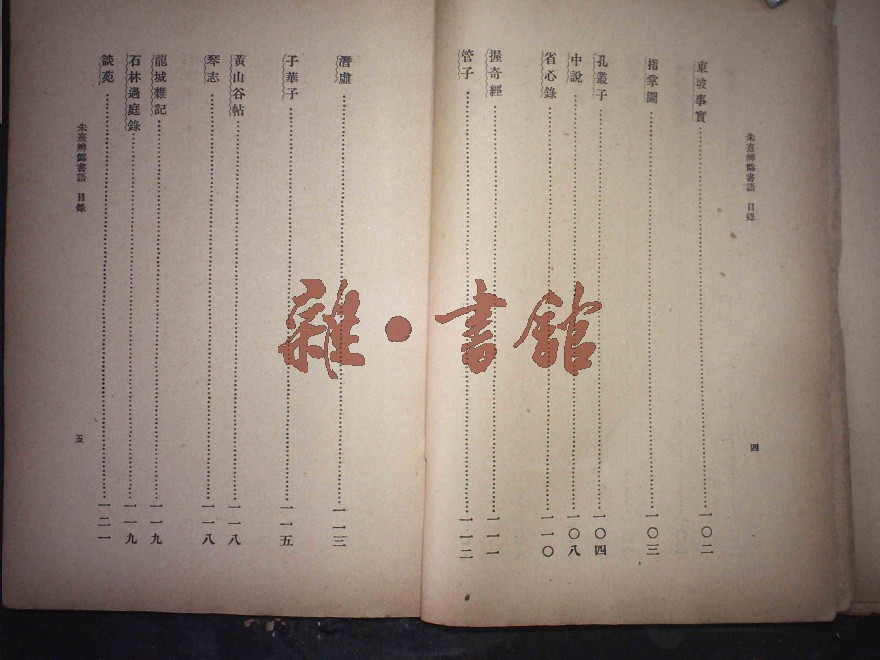 朱熹辨僞書語 目錄
四
東坡事實一〇二
指掌圖一〇三
孔叢子一〇四
中說一〇八
省心錄一一〇
握奇經一一一
管子一一二
潛虛一一三
子華子一一五
黃山谷帖一一八
琴志一一八
龍城雜記一一九
石林過庭錄一一九
談苑一二一
朱熹辨僞書語 目錄
五
雜·書館